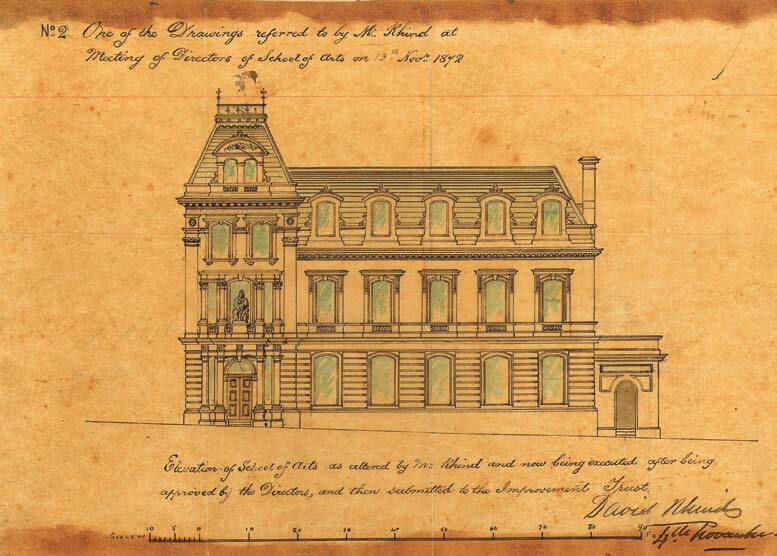 No. 2 One of the Drawings referred to by Mr. Rhind at
Meeting of Directors of School of Arts on 13th Novr. 1872
Elevation of School of Arts as altered by Mr. Rhind and now being executed after being
approved by the Directors, and then submitted to the Improvement Trust.
David Rhind
SCALE OF 10 5 0 10 20 30 40 50 60 70 80 90